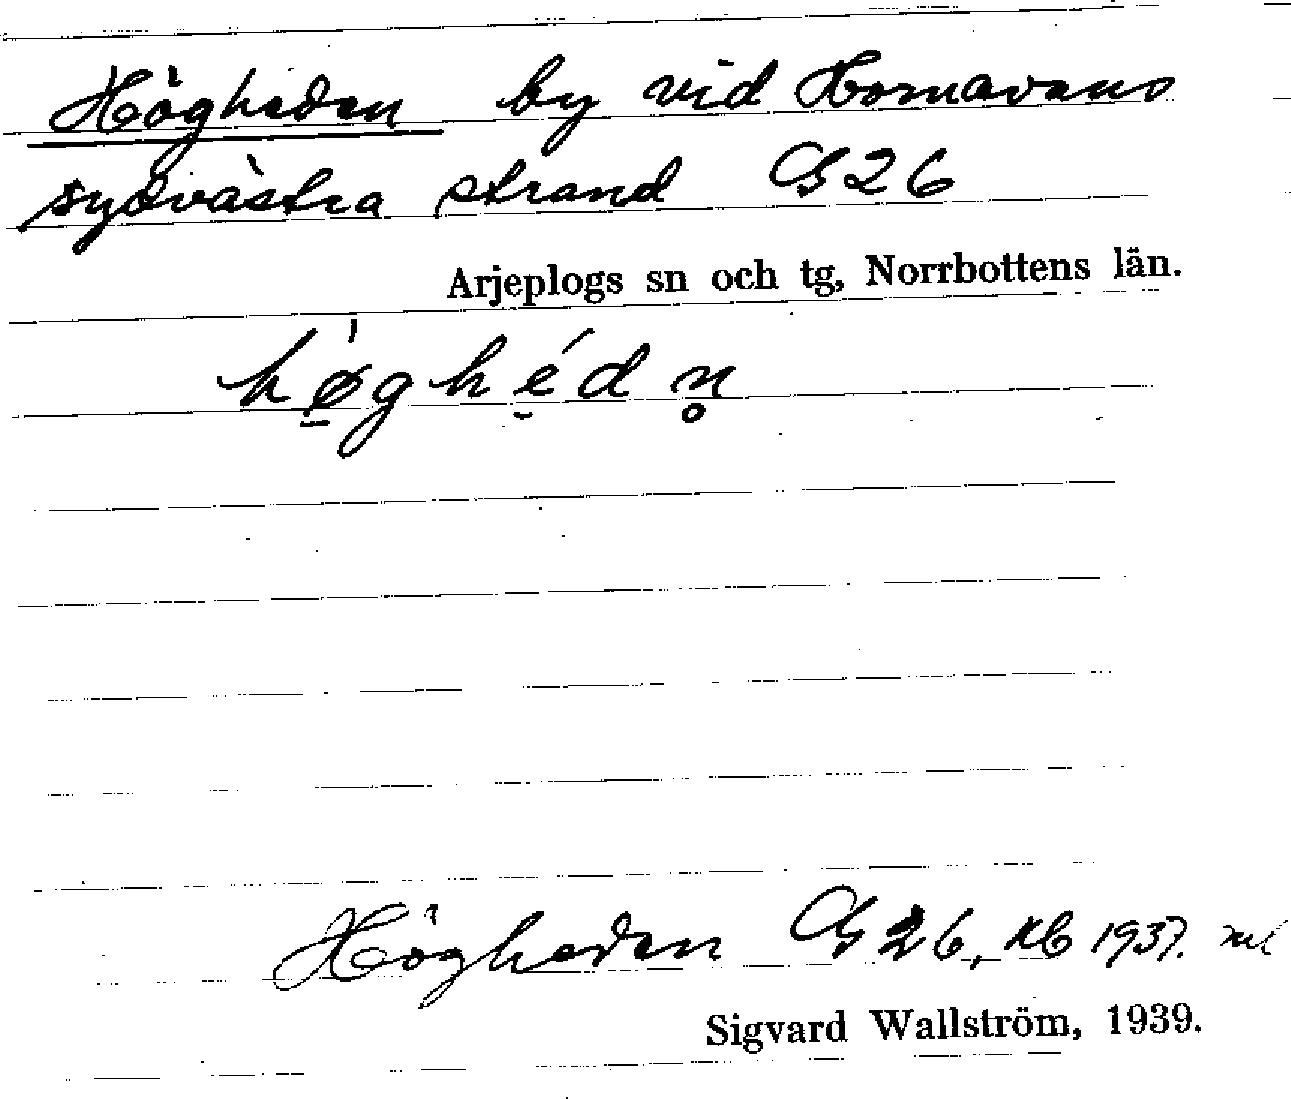 Högheden by vid Hornavans
sydvästra strand G 26
Arjeplogs sn och tg, Norrbottens län.
hø̠̀ghé̠dn̥
Högheden G 26, Kb 1937.
Sigvard Wallström, 1939.